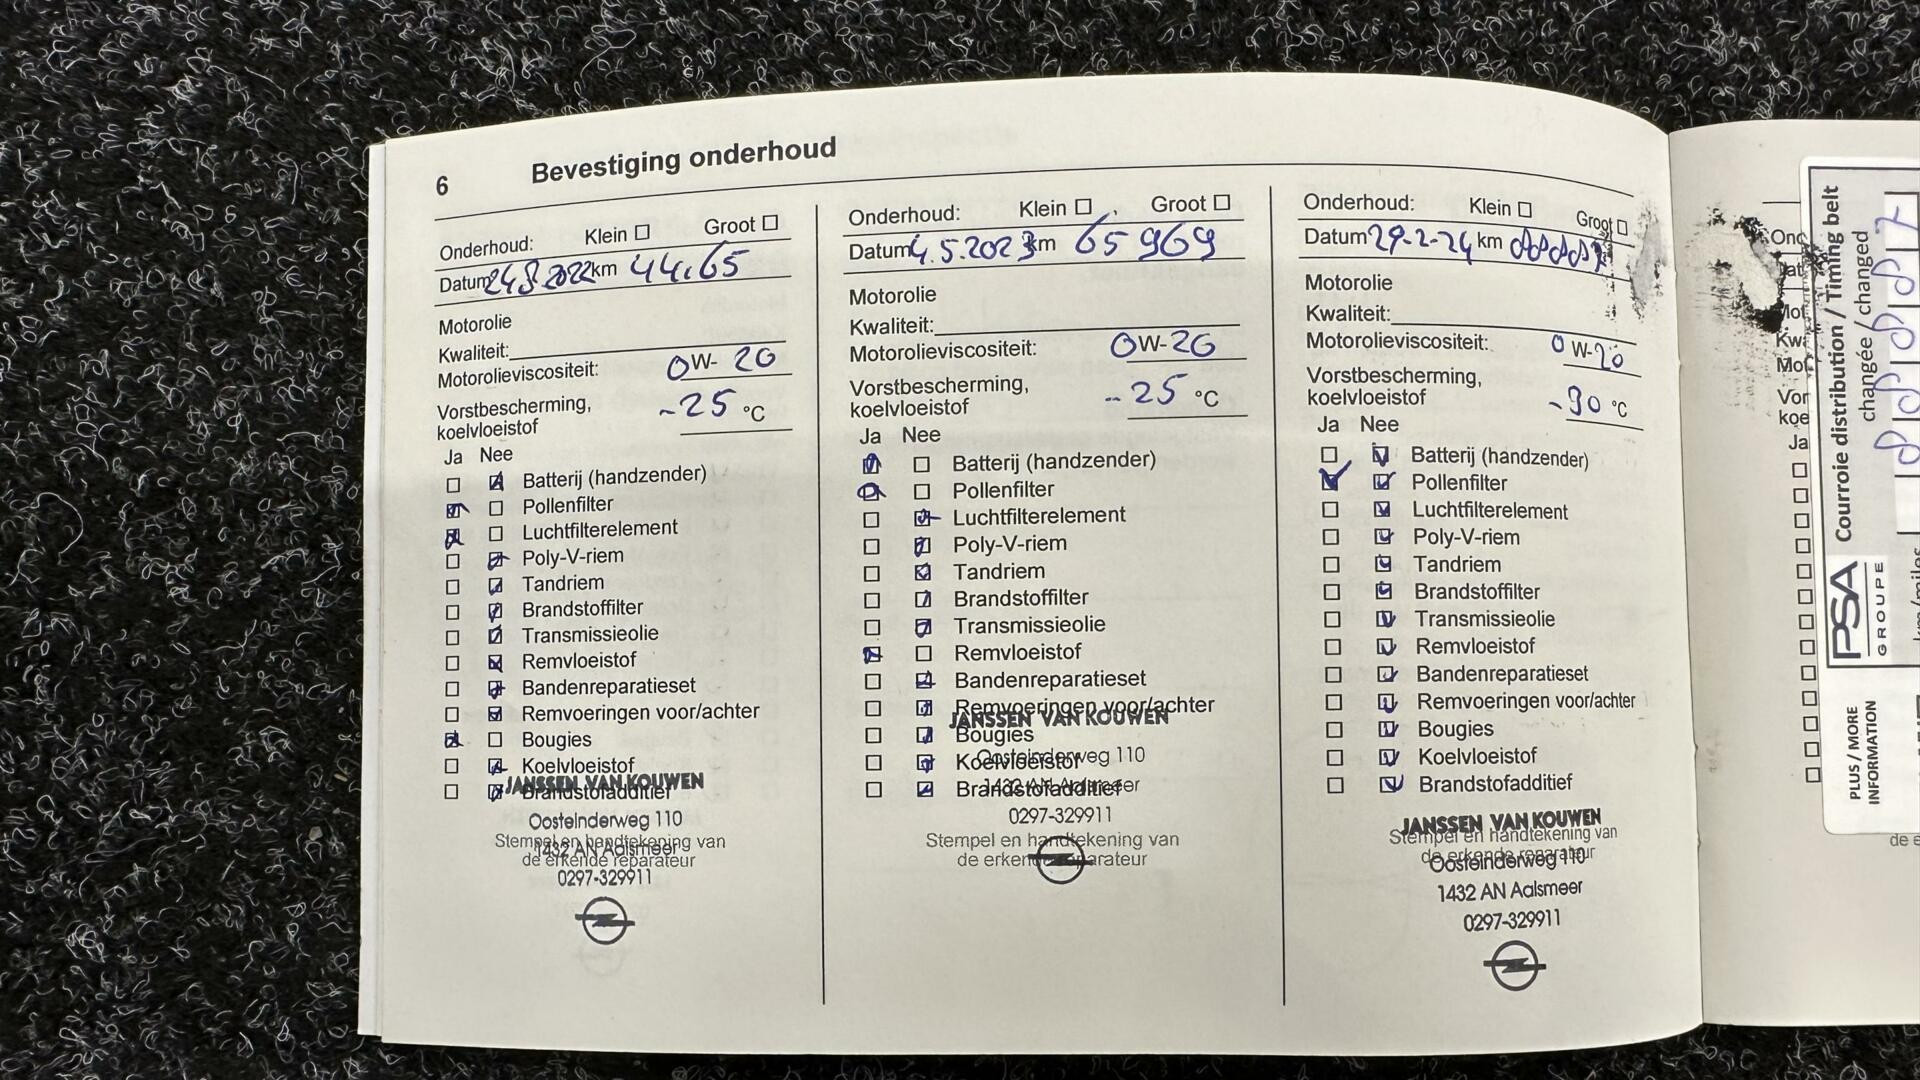 6 Bevestiging onderhoud
Onderhoud: Klein Groot
Datum 24.8.2022 km 44.65
Motorolie
Kwaliteit:
Motorolieviscositeit: 0W-20
Vorstbescherming,
koelvloeistof -25 °C
Ja Nee
Batterij (handzender)
Pollenfilter
Luchtfilterelement
Poly-V-riem
Tandriem
Brandstoffilter
Transmissieolie
Remvloeistof
Bandenreparatieset
Remvoeringen voor/achter
Bougies
Koelvloeistof
Brandstofadditief
JANSSEN VAN KOUWEN
Oosteinderweg 110
Stempel en handtekening van
1432 AN Aalsmeer
de erkende reparateur
0297-329911
Onderhoud: Klein Groot
Datum 4.5.2023 km 65969
Motorolie
Kwaliteit:
Motorolieviscositeit: 0W-20
Vorstbescherming,
koelvloeistof -25 °C
Ja Nee
Batterij (handzender)
Pollenfilter
Luchtfilterelement
Poly-V-riem
Tandriem
Brandstoffilter
Transmissieolie
Remvloeistof
Bandenreparatieset
Remvoeringen voor/achter
JANSSEN VAN KOUWEN
Bougies
Oosteinderweg 110
Koelvloeistof
1432 AN Aalsmeer
Brandstofadditief
0297-329911
Stempel en handtekening van
de erkende reparateur
Onderhoud: Klein Groot
Datum 29-2-24 km 88887
Motorolie
Kwaliteit:
Motorolieviscositeit: 0W-20
Vorstbescherming,
koelvloeistof -30 °C
Ja Nee
Batterij (handzender)
Pollenfilter
Luchtfilterelement
Poly-V-riem
Tandriem
Brandstoffilter
Transmissieolie
Remvloeistof
Bandenreparatieset
Remvoeringen voor/achter
Bougies
Koelvloeistof
Brandstofadditief
JANSSEN VAN KOUWEN
Stempel en handtekening van
de erkende reparateur
Oosteinderweg 110
1432 AN Aalsmeer
0297-329911
Mot
Kwa
Mot
Vor
koe
Ja
de e
Courroie distribution / Timing belt
changée / changed
88887
PSA
GROUPE
km/miles
PLUS / MORE
INFORMATION